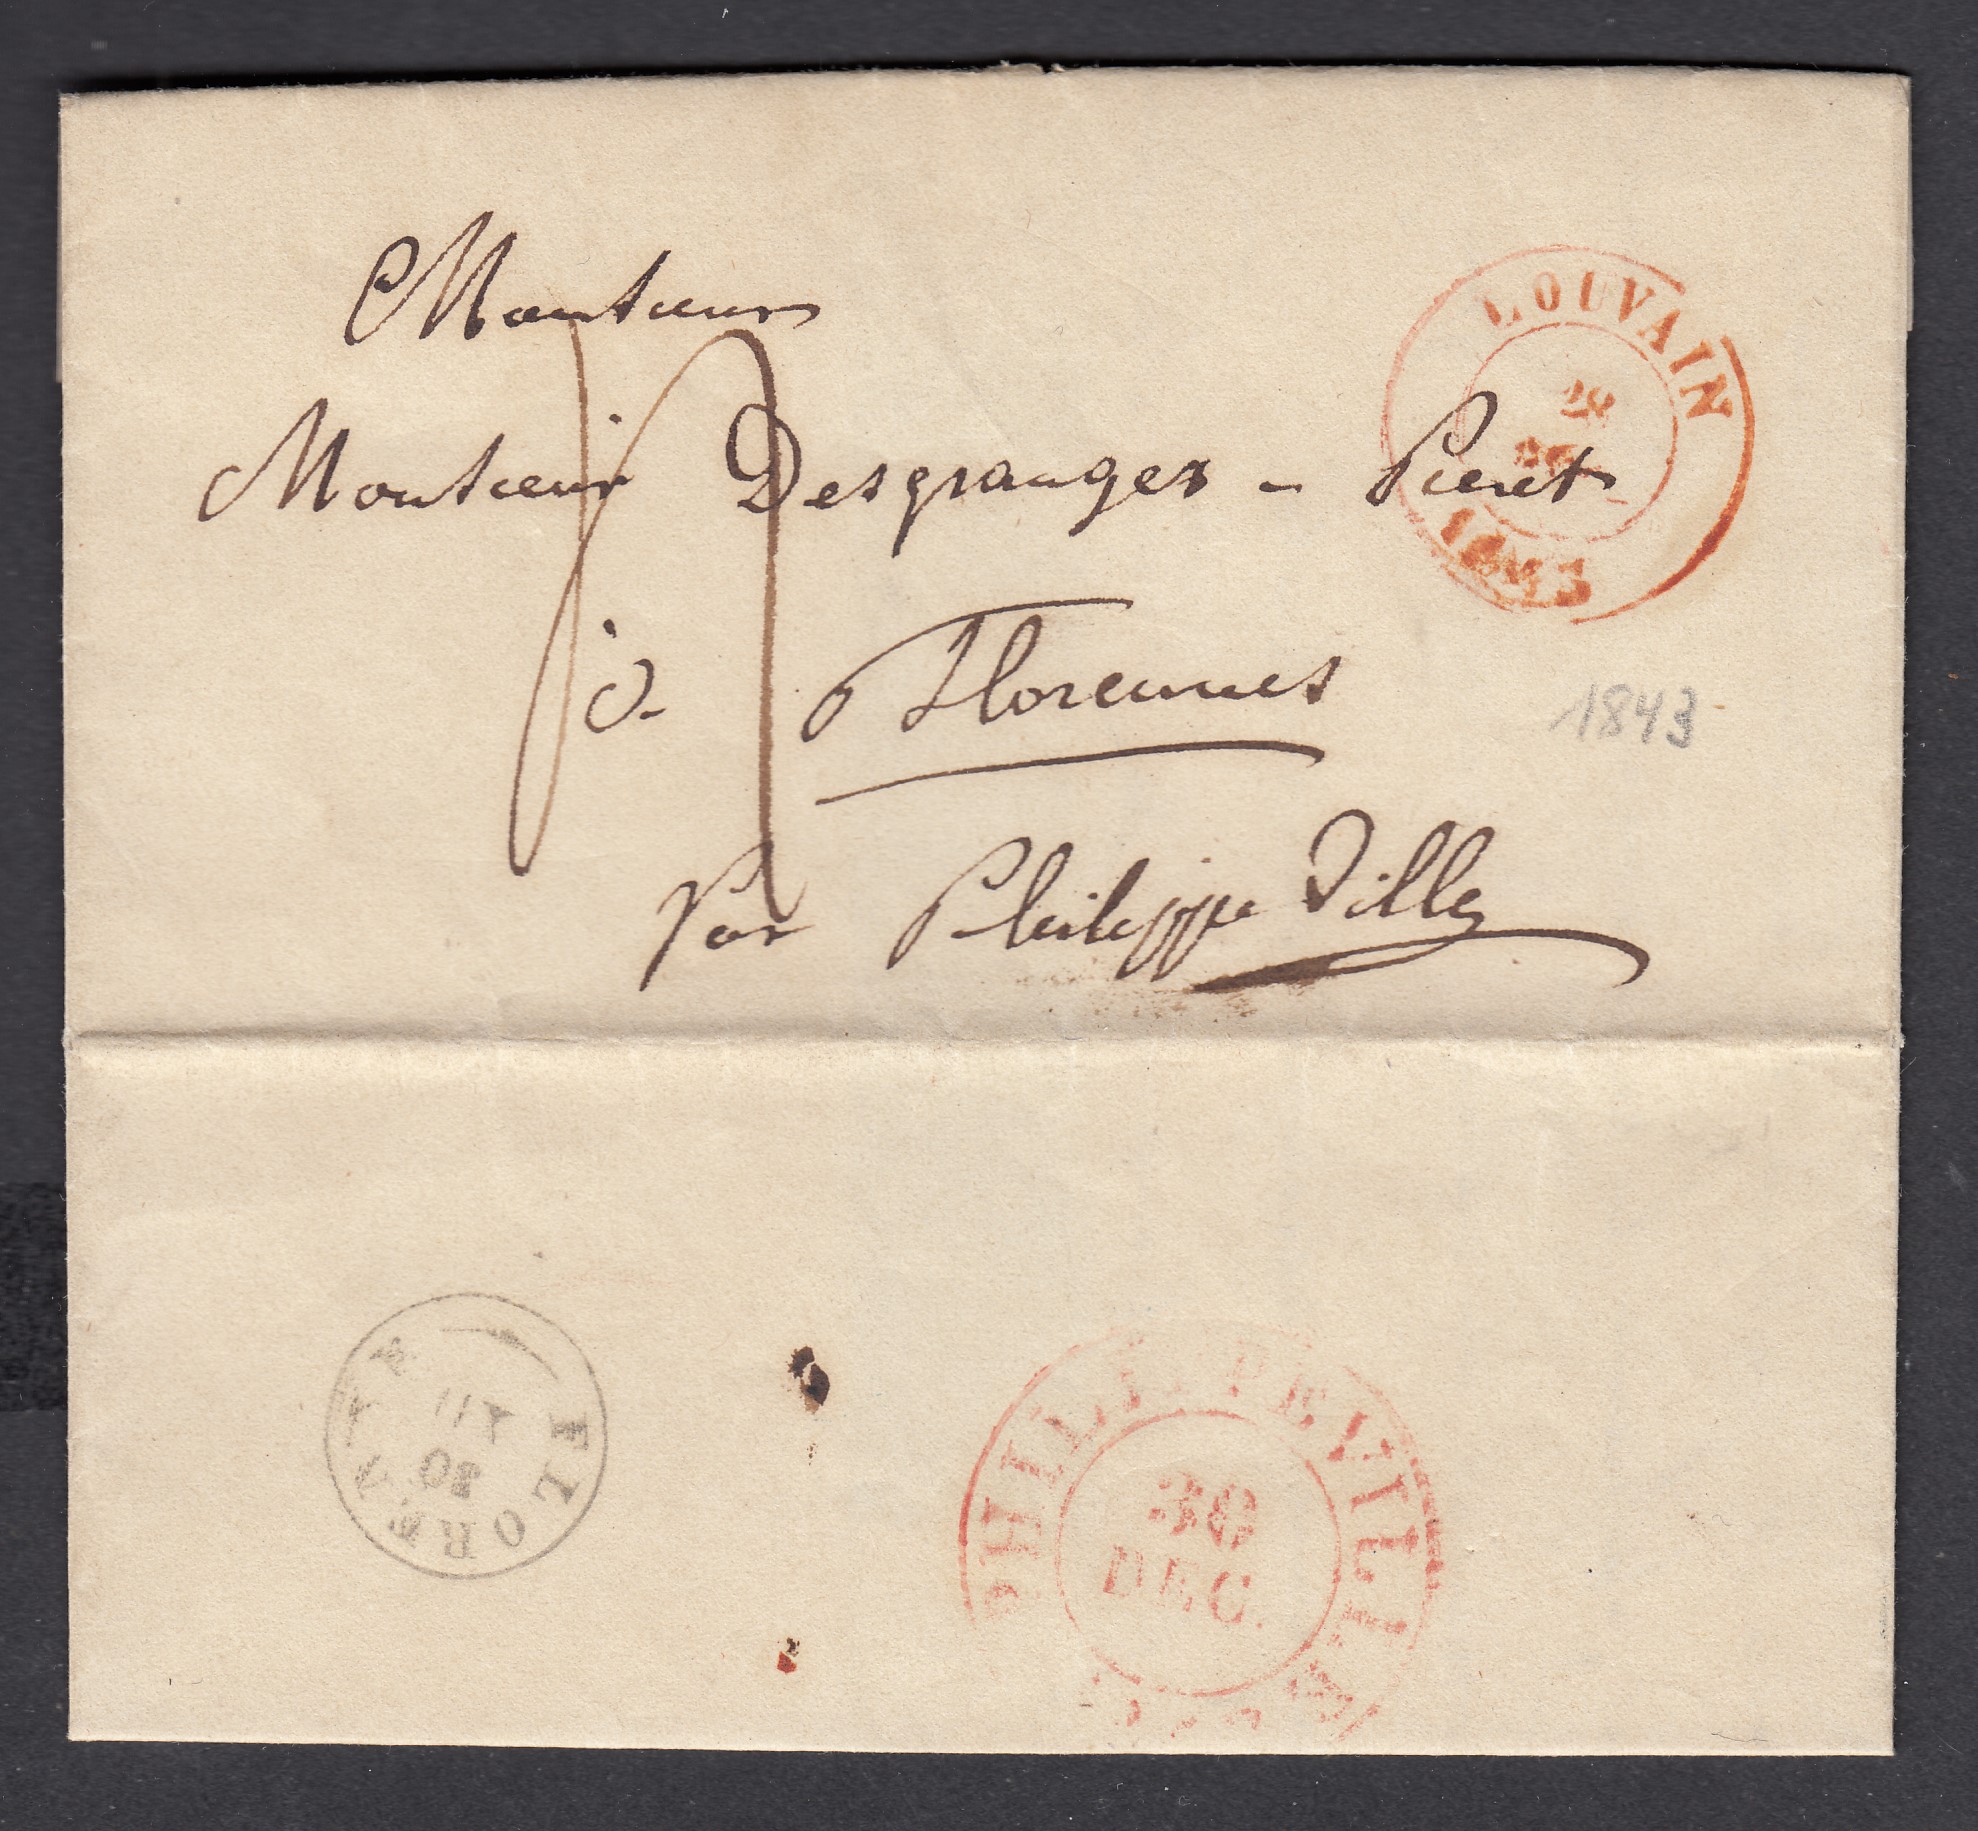 Monsieur
Monsieur Desgranges - Pieret
à Florennes
Par Philippe Ville
LOUVAIN
1843
1843
FLORENNES
30
PHILIPPEVILLE
30
DEC.